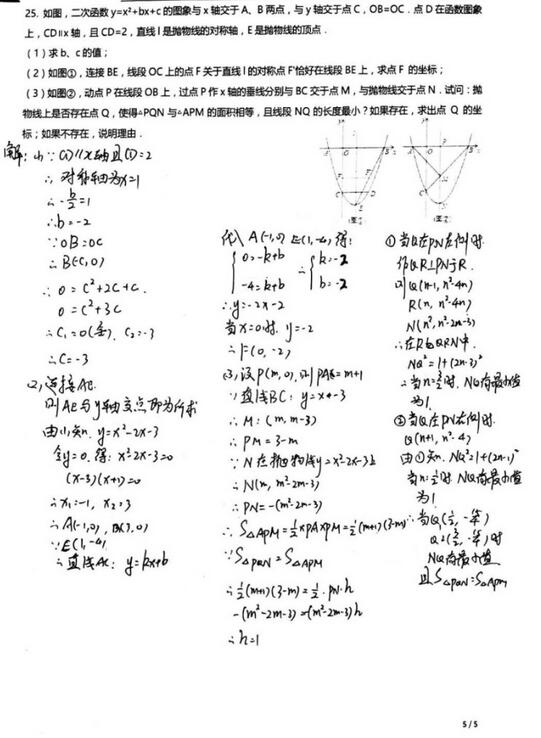 25. 如图，二次函数 y=x²+bx+c 的图象与 x 轴交于 A、B 两点，与 y 轴交于点 C，OB=OC．点 D 在函数图象
上，CD∥x 轴，且 CD=2，直线 l 是抛物线的对称轴，E 是抛物线的顶点．
（1）求 b、c 的值；
（2）如图①，连接 BE，线段 OC 上的点 F 关于直线 l 的对称点 F'恰好在线段 BE 上，求点 F 的坐标；
（3）如图②，动点 P 在线段 OB 上，过点 P 作 x 轴的垂线分别与 BC 交于点 M，与抛物线交于点 N．试问：抛
物线上是否存在点 Q，使得△PQN 与△APM 的面积相等，且线段 NQ 的长度最小？如果存在，求出点 Q 的坐
标；如果不存在，说明理由．
解：(1) ∵CD∥x轴且CD=2
∴对称轴为x=1
∴-b/2=1
∴b=-2
∵OB=OC
∴B(-C,0)
∴0=C²+2C+C.
0=C²+3C
∴C₁=0(舍). C₂=-3
∴C=-3
(2)连接AE.
则AE与y轴交点即为所求
由(1)知. y=x²-2x-3
令y=0.得: x²-2x-3=0
(x-3)(x+1)=0
∴x₁=-1, x₂=3
∴A(-1,0), B(3,0)
∵E(1,-4)
∴直线AE: y=kx+b
代入 A(-1,0) E(1,-4)得:
{0=-k+b ∴{k=-2
-4=k+b b=-2
∴y=-2x-2
当x=0时. y=-2
∴F(0,-2)
(3)设P(m,0).则PA=m+1
∵直线BC: y=x-3
∴M:(m,m-3)
∴PM=3-m
∵N在抛物线y=x²-2x-3上
∴N(m, m²-2m-3)
∴PN=-(m²-2m-3)
∴S△APM=½×PA×PM=½(m+1)(3-m)
∵S△PQN=S△APM
∴½(m+1)(3-m)=½·PN·h
-(m²-2m-3)=-(m²-2m-3)h
∴h=1
①当Q在PN左侧时.
作QR⊥PN于R.
则Q(n-1, n²-4n)
R(n, n²-4n)
N(n, n²-2n-3)
∴在Rt△QRN中.
NQ²=1+(2n-3)²
∴当n=3/2时. NQ有最小值
为1.
②当Q在PN右侧时.
Q(n+1, n²-4)
由①知. NQ²=1+(2n-1)²
当n=½时. NQ有最小值
为1
∴当Q₁(½,-15/4)
Q₂(3/2,-15/4)时
NQ有最小值
且S△PQN=S△APM
5 / 5